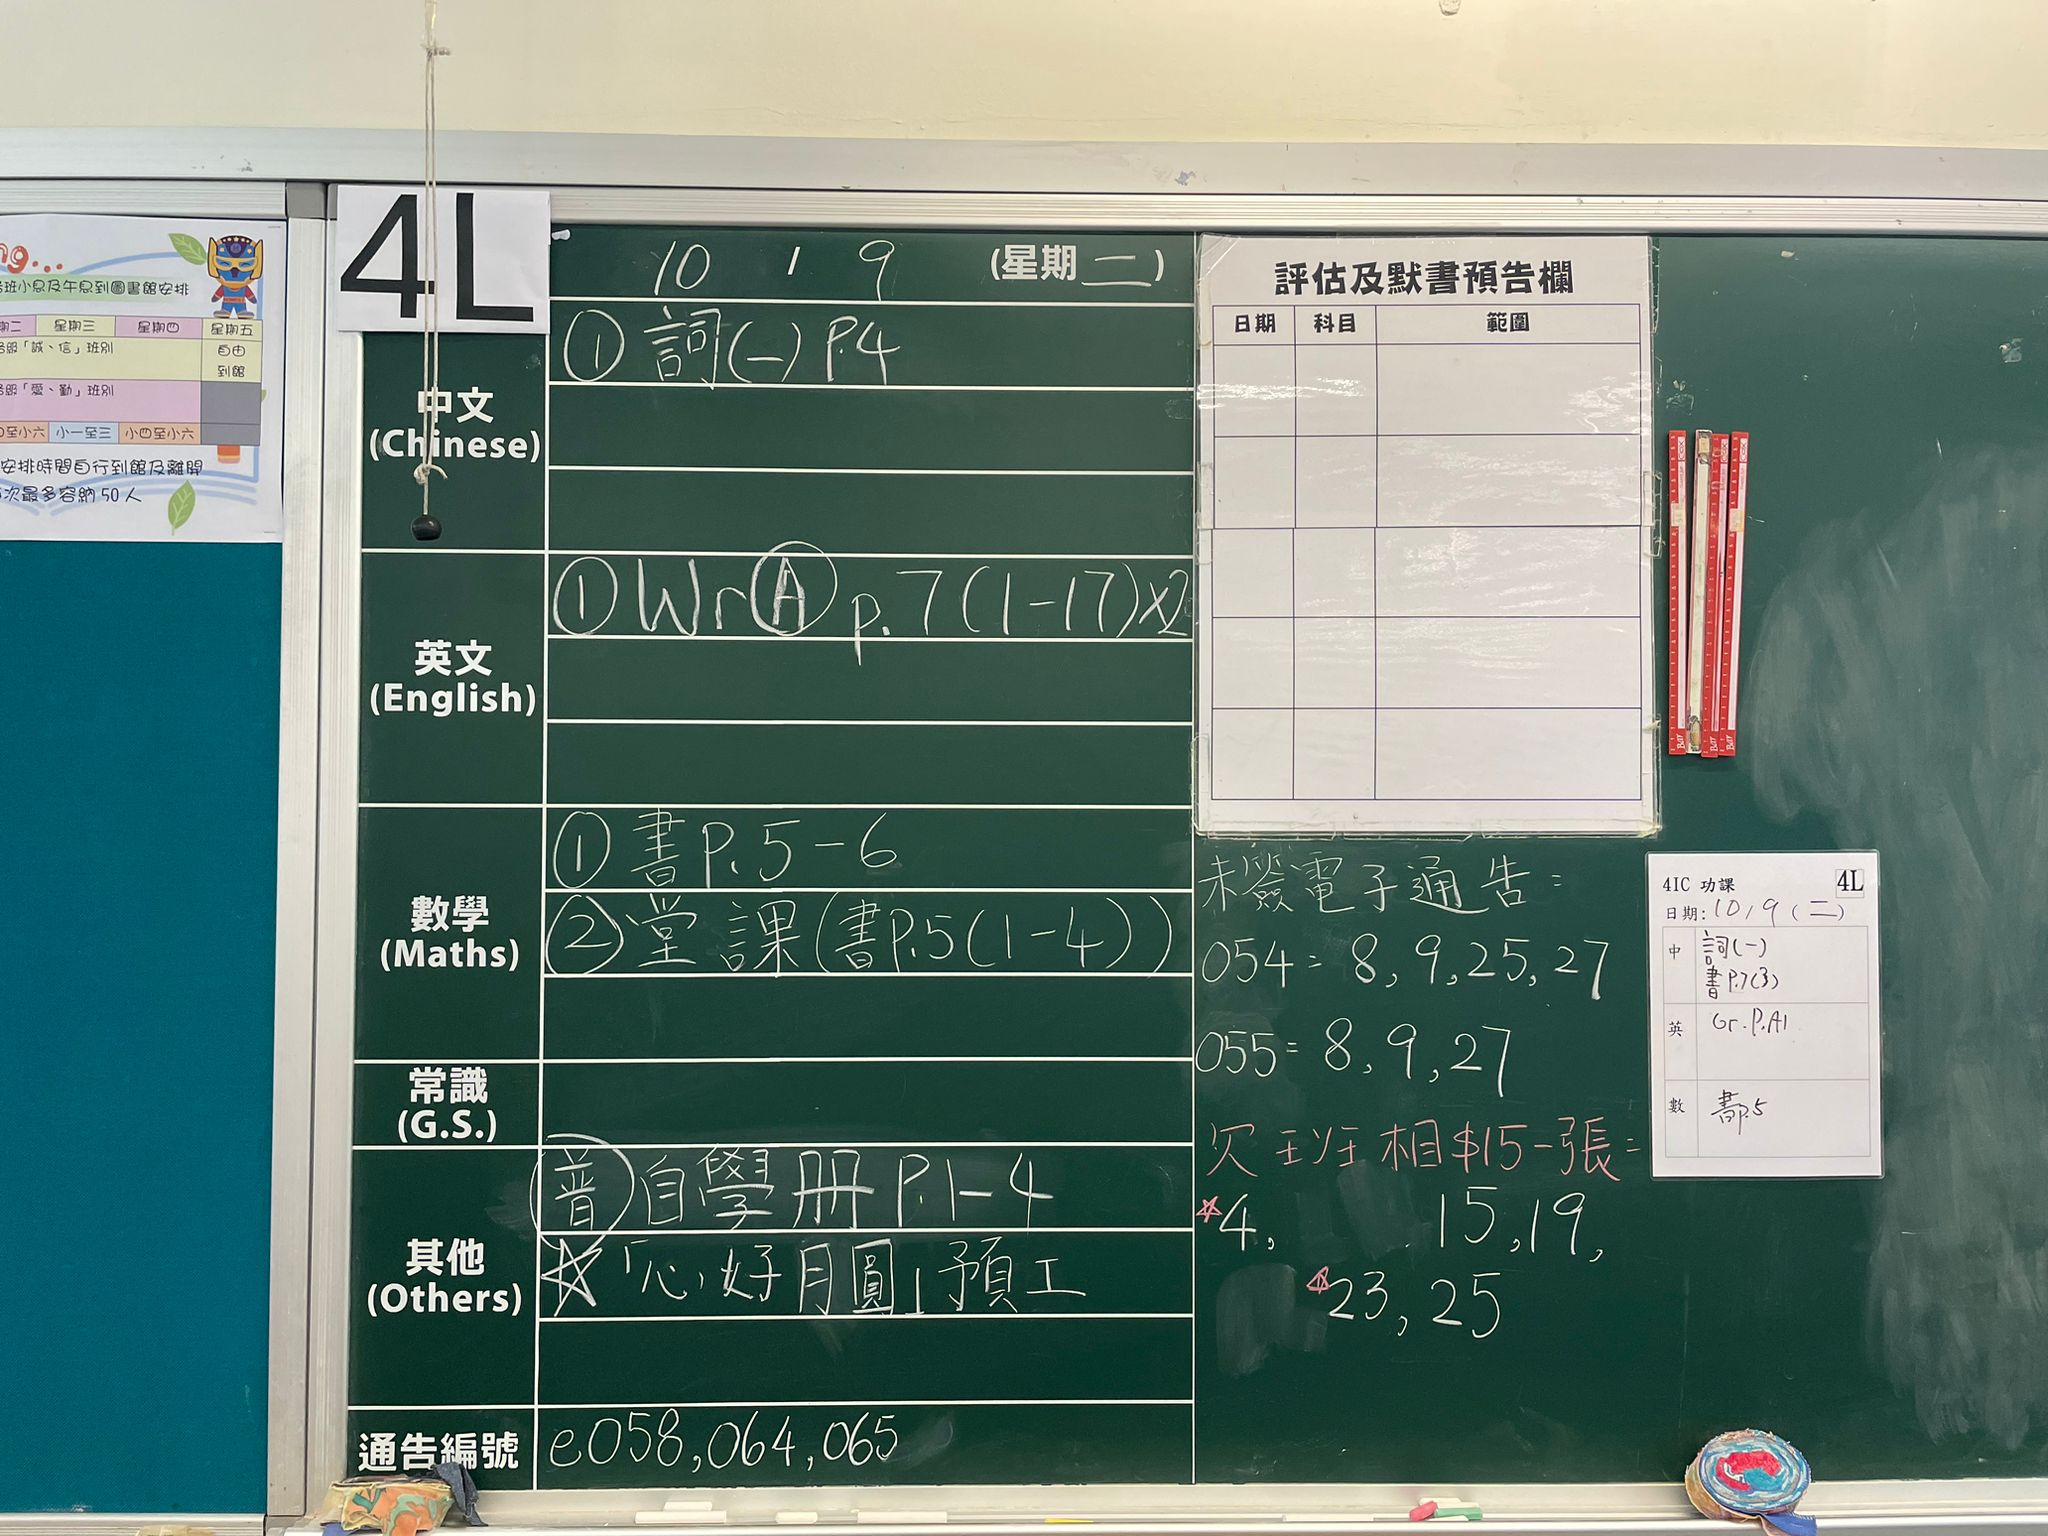 ng...
各班小息及午息到圖書館安排
期二 星期三 星期四 星期五
各級「誠、信」班別
自由
到館
各級「愛、勤」班別
四至小六 小一至三 小四至小六
安排時間自行到館及離開
次最多容納 50 人
4L
10 / 9 (星期二)
中文
(Chinese)
① 詞(一) P.4
英文
(English)
① Wr Ⓐ p.7(1-17)x2
數學
(Maths)
① 書P.5-6
② 堂課(書P.5(1-4))
常識
(G.S.)
其他
(Others)
普 自學冊 P.1-4
☆「心好月圓」預工
通告編號
e058,064,065
評估及默書預告欄
日期 科目 範圍
未簽電子通告:
054: 8,9,25,27
055: 8,9,27
欠班相$15一張:
☆4, 15,19,
☆23,25
4IC 功課 4L
日期: 10/9 (二)
中 詞(一)
書P.7(3)
英 Gr. P.A1
數 書P.5